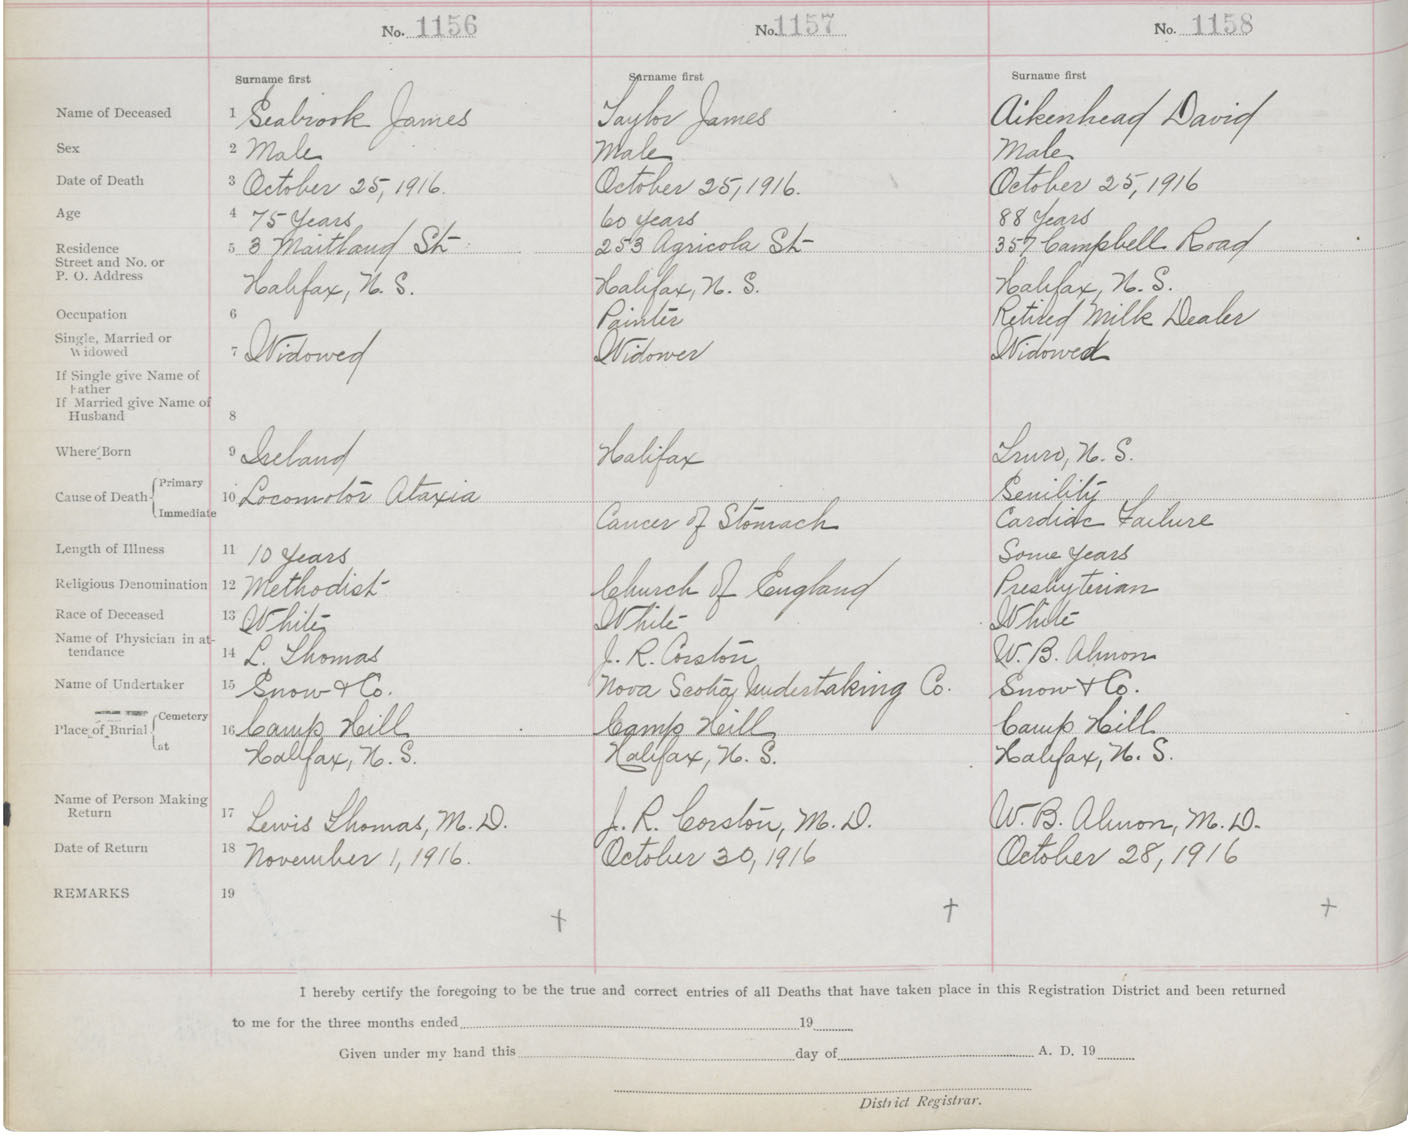 No. 1156 No. 1157 No. 1158
Surname first Surname first Surname first
Name of Deceased 1 Seabrook James Taylor James Aikenhead David
Sex 2 Male Male Male
Date of Death 3 October 25, 1916. October 25, 1916. October 25, 1916
Age 4 75 Years 60 years 88 Years
Residence 5 3 Maitland St 253 Agricola St 357 Campbell Road
Street and No. or
P. O. Address Halifax, N. S. Halifax, N. S. Halifax, N. S.
Occupation 6 Painter Retired Milk Dealer
Single, Married or
Widowed 7 Widowed Widower Widowed
If Single give Name of
Father
If Married give Name of
Husband 8
Where Born 9 Ireland Halifax Truro, N. S.
Primary Senility
Cause of Death 10 Locomotor Ataxia
Immediate Cancer of Stomach Cardiac Failure
Length of Illness 11 10 years Some years
Religious Denomination 12 Methodist Church of England Presbyterian
Race of Deceased 13 White White White
Name of Physician in at-
tendance 14 L. Thomas J. R. Corston W. B. Almon
Name of Undertaker 15 Snow & Co. Nova Scotia Undertaking Co. Snow & Co.
Cemetery
Place of Burial 16 Camp Hill Camp Hill Camp Hill
at Halifax, N. S. Halifax, N. S. Halifax, N. S.
Name of Person Making
Return 17 Lewis Thomas, M. D. J. R. Corston, M. D. W. B. Almon, M. D.
Date of Return 18 November 1, 1916. October 30, 1916 October 28, 1916
REMARKS 19
I hereby certify the foregoing to be the true and correct entries of all Deaths that have taken place in this Registration District and been returned
to me for the three months ended 19
Given under my hand this day of A. D. 19
District Registrar.